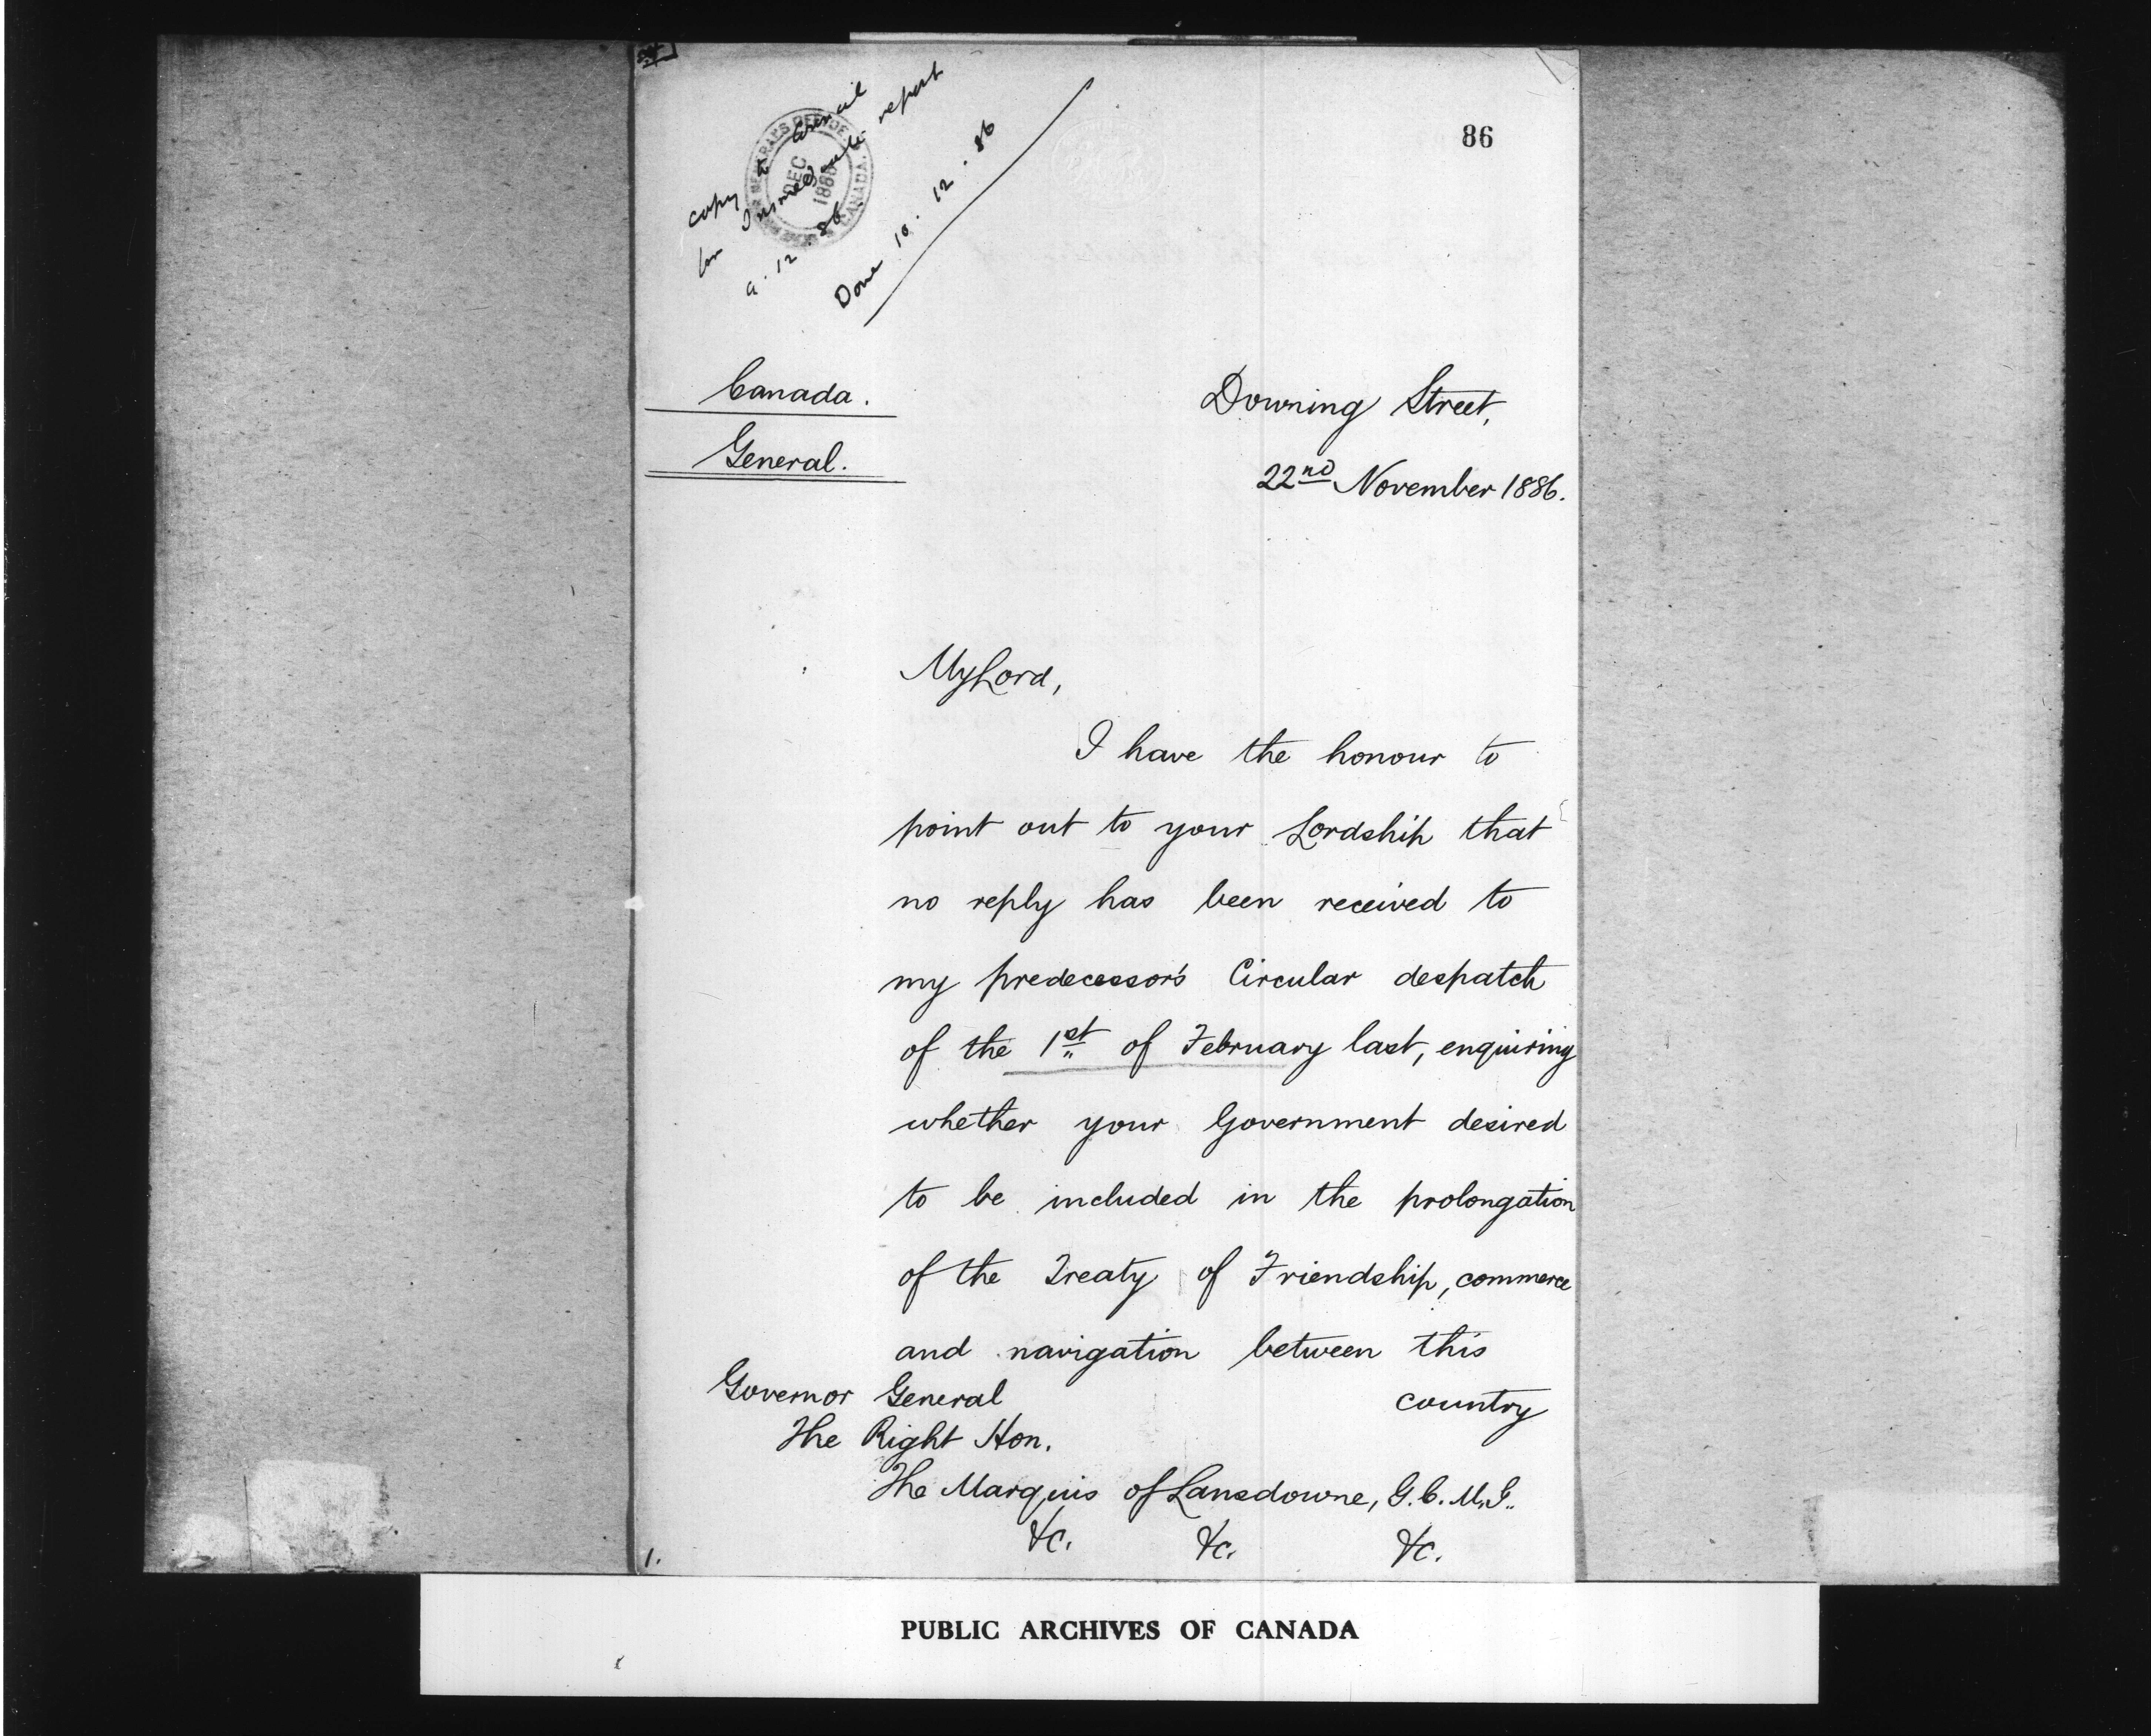 copy to Council
for Immediate report
9.12.86
Done 10.12.86
DEC
1886
CANADA
86
Canada.
General.
Downing Street,
22nd November 1886.
My Lord,
I have the honour to
point out to your Lordship that
no reply has been received to
my predecessor's Circular despatch
of the 1st of February last, enquiring
whether your Government desired
to be included in the prolongation
of the Treaty of Friendship, commerce
and navigation between this
country
Governor General
The Right Hon.
The Marquis of Lansdowne, G.C.M.G.
&c. &c. &c.
1.
PUBLIC ARCHIVES OF CANADA